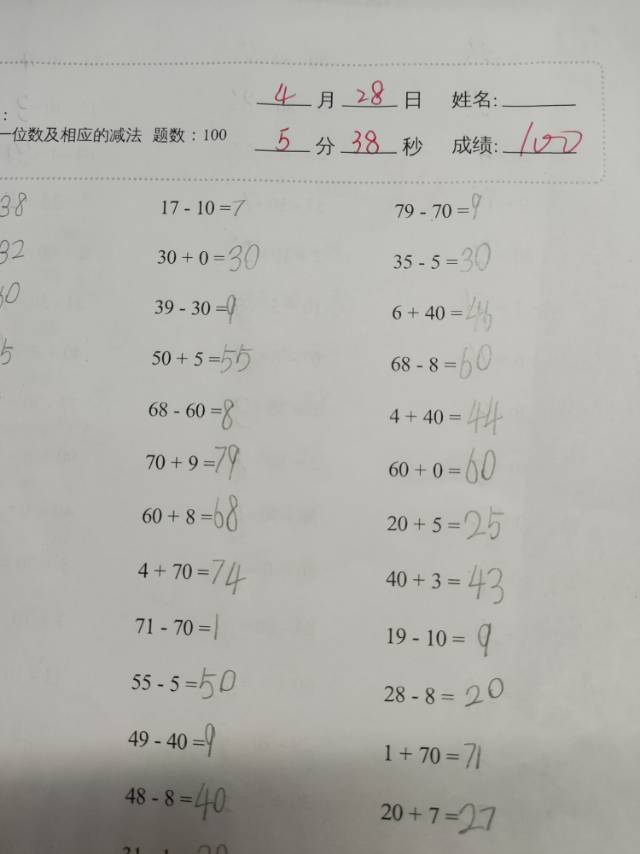 4 月 28 日 姓名:
一位数及相应的减法 题数：100 5 分 38 秒 成绩: 100
38 17 - 10 =7 79 - 70 =9
32 30 + 0 =30 35 - 5 =30
39 - 30 =9 6 + 40 =46
50 + 5 =55 68 - 8 =60
68 - 60 =8 4 + 40 =44
70 + 9 =79 60 + 0 =60
60 + 8 =68 20 + 5 =25
4 + 70 =74 40 + 3 =43
71 - 70 =1 19 - 10 = 9
55 - 5 =50 28 - 8 = 20
49 - 40 =9 1 + 70 =71
48 - 8 =40 20 + 7 =27